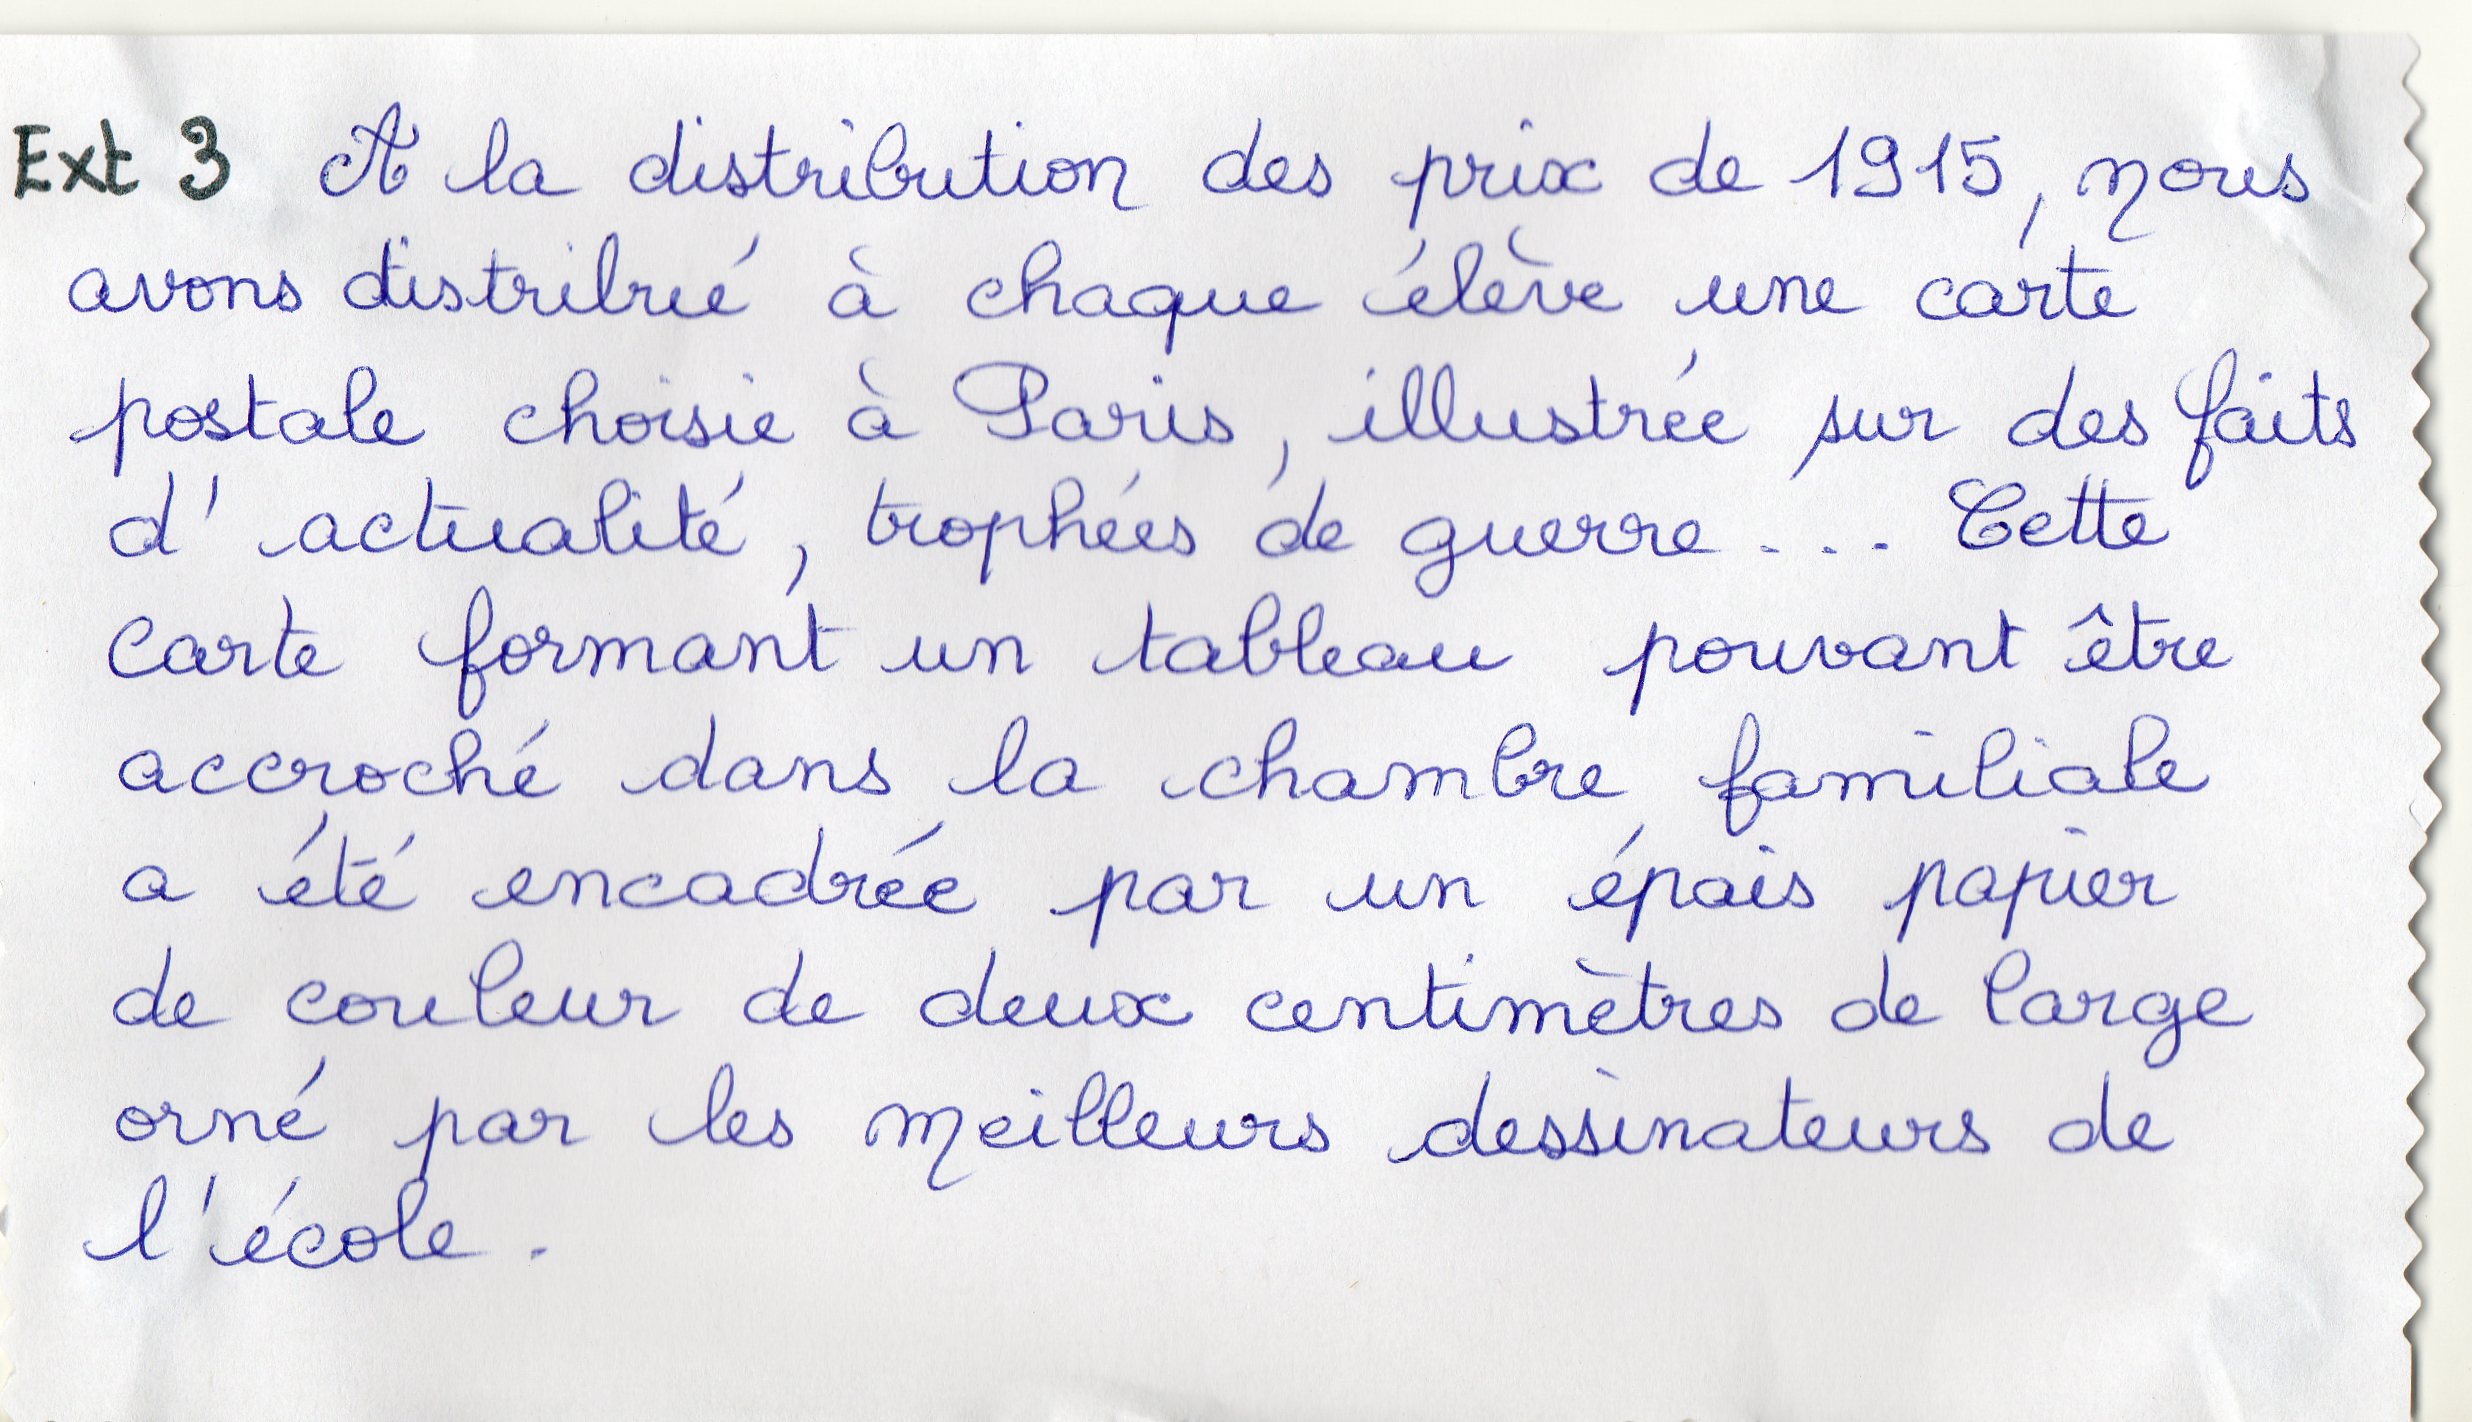 Ext 3 A la distribution des prix de 1915, nous
avons distribué à chaque élève une carte
postale choisie à Paris, illustrée sur des faits
d'actualité, trophées de guerre... Cette
carte formant un tableau pouvant être
accroché dans la chambre familiale
a été encadrée par un épais papier
de couleur de deux centimètres de large
orné par les meilleurs dessinateurs de
l'école.